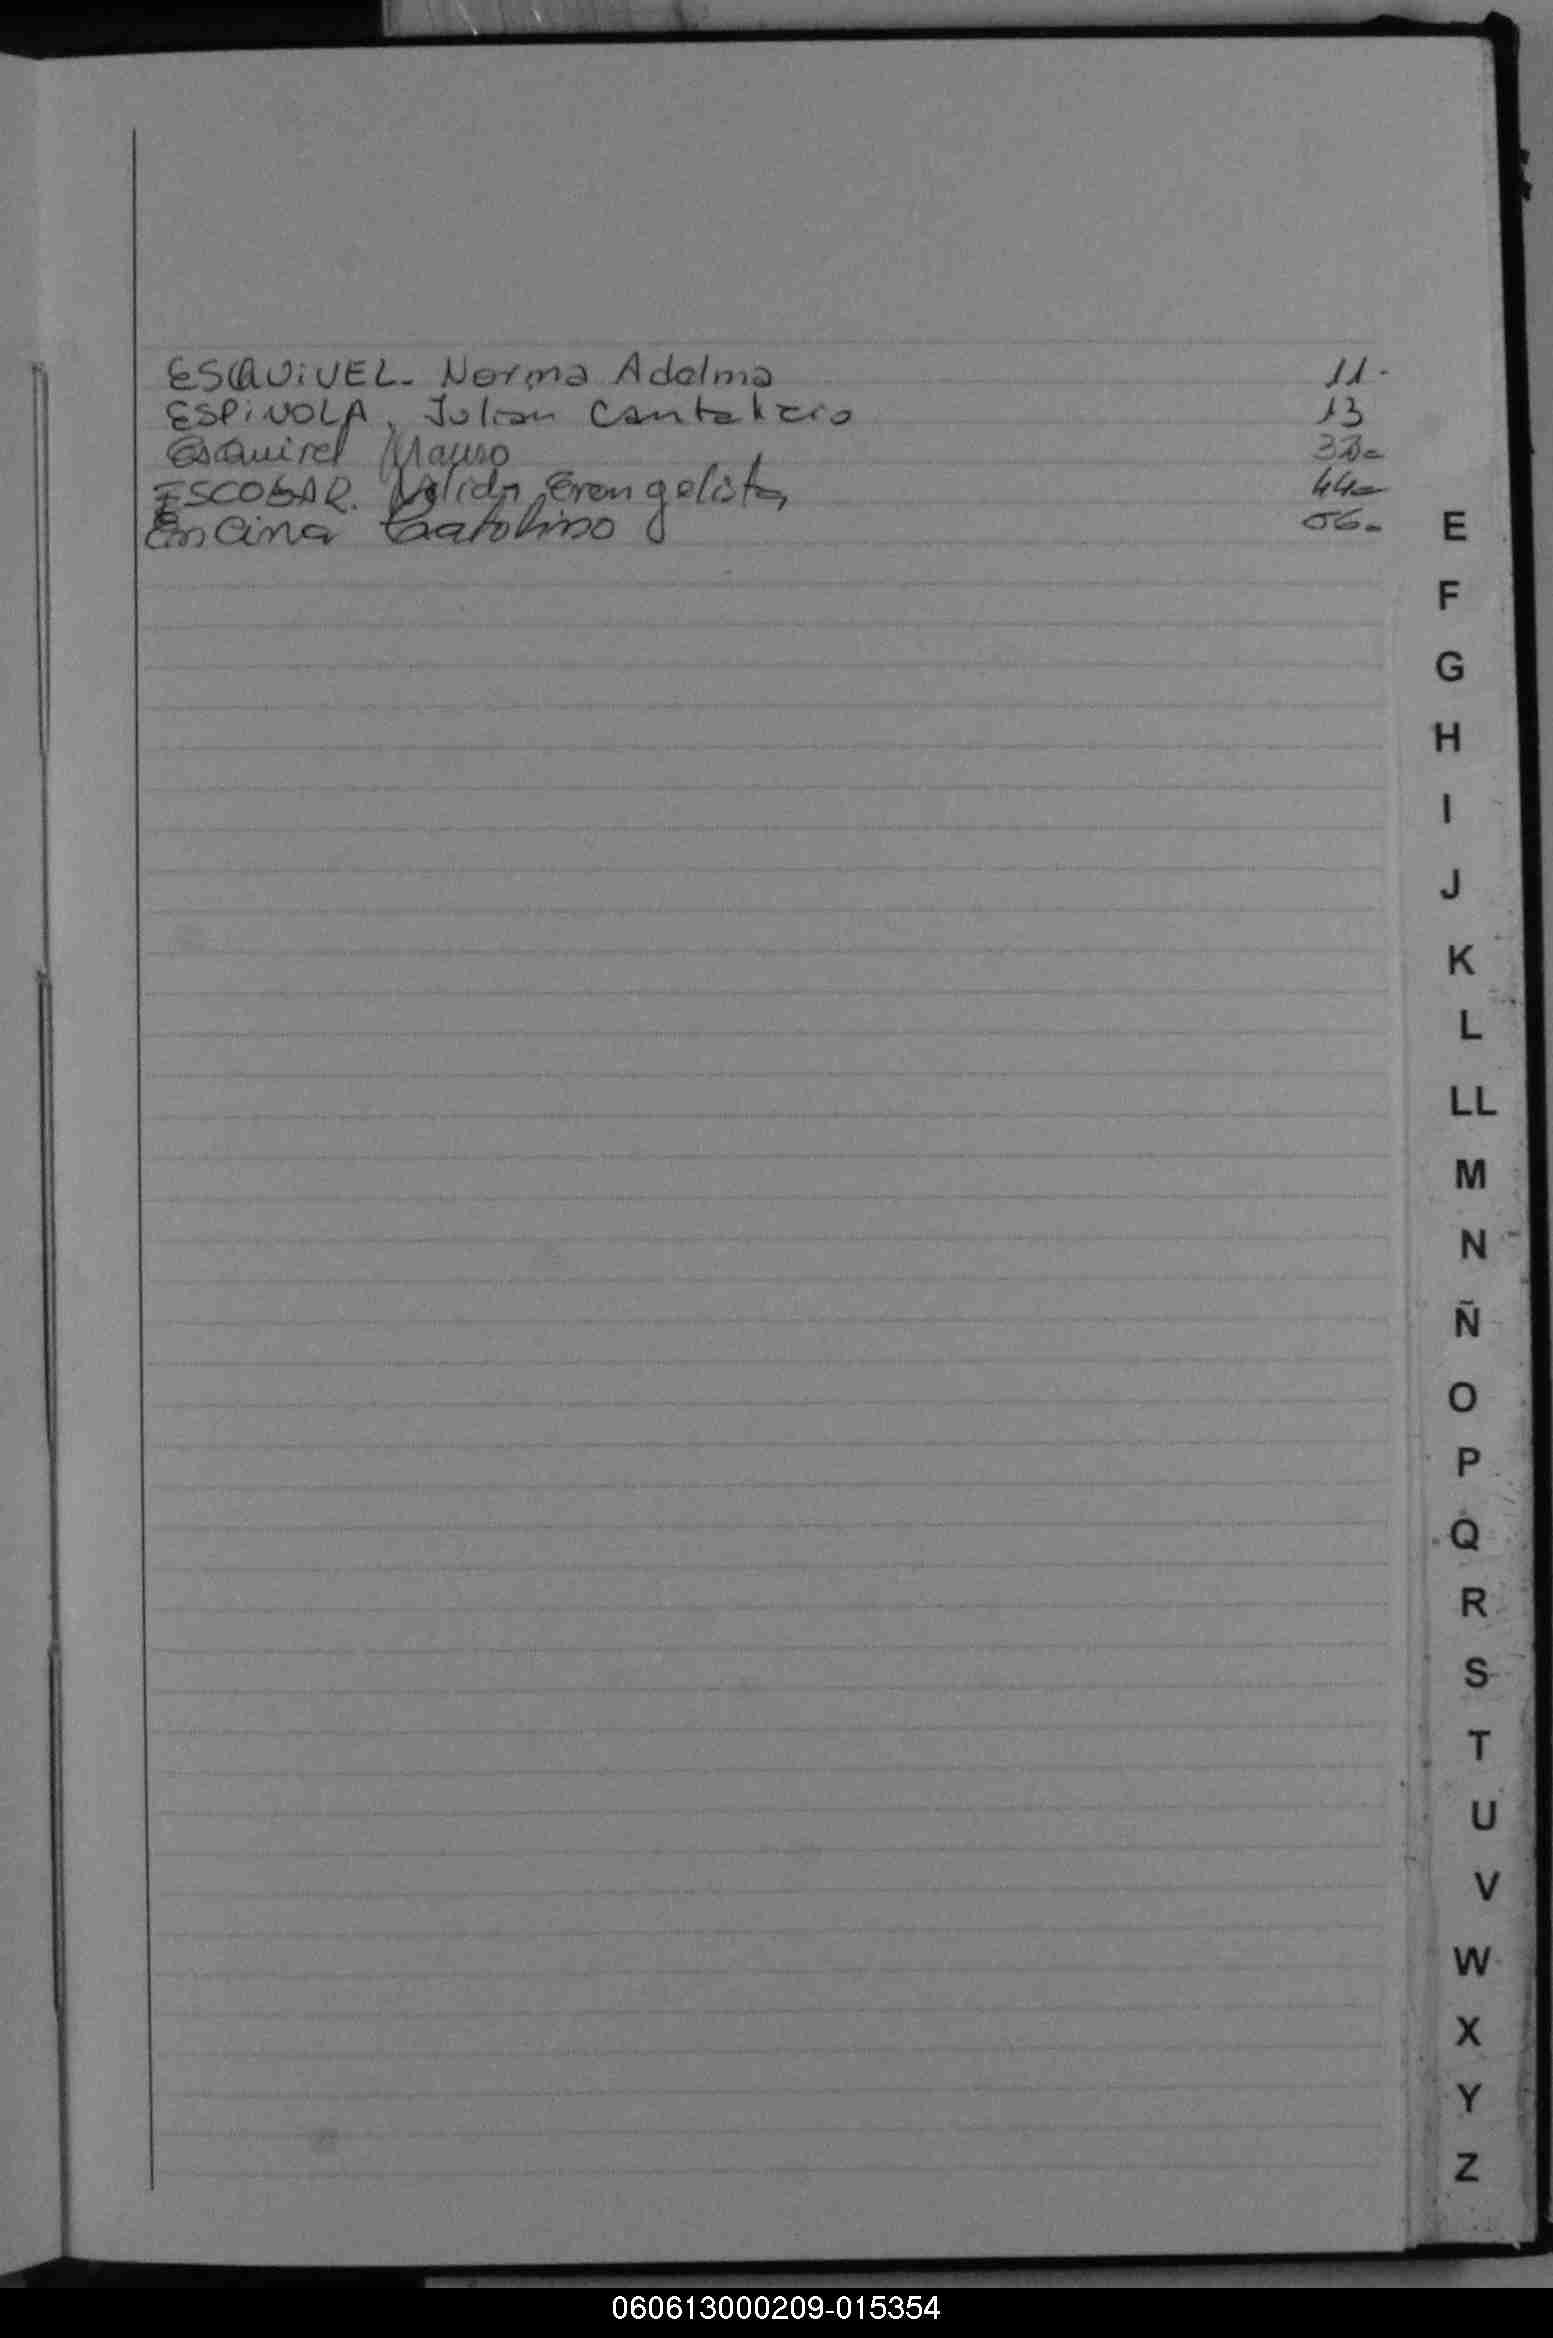 ESQUIVEL. Norma Adelma 11.
ESPINOLA, Julian Cantalicio 13
Esquivel Mauro
ESCOBAR. Evangelista 44=
Encina Catalino 56.
E
F
G
H
I
J
K
L
LL
M
N
Ñ
O
P
Q
R
S
T
U
V
W
X
Y
Z
060613000209-015354